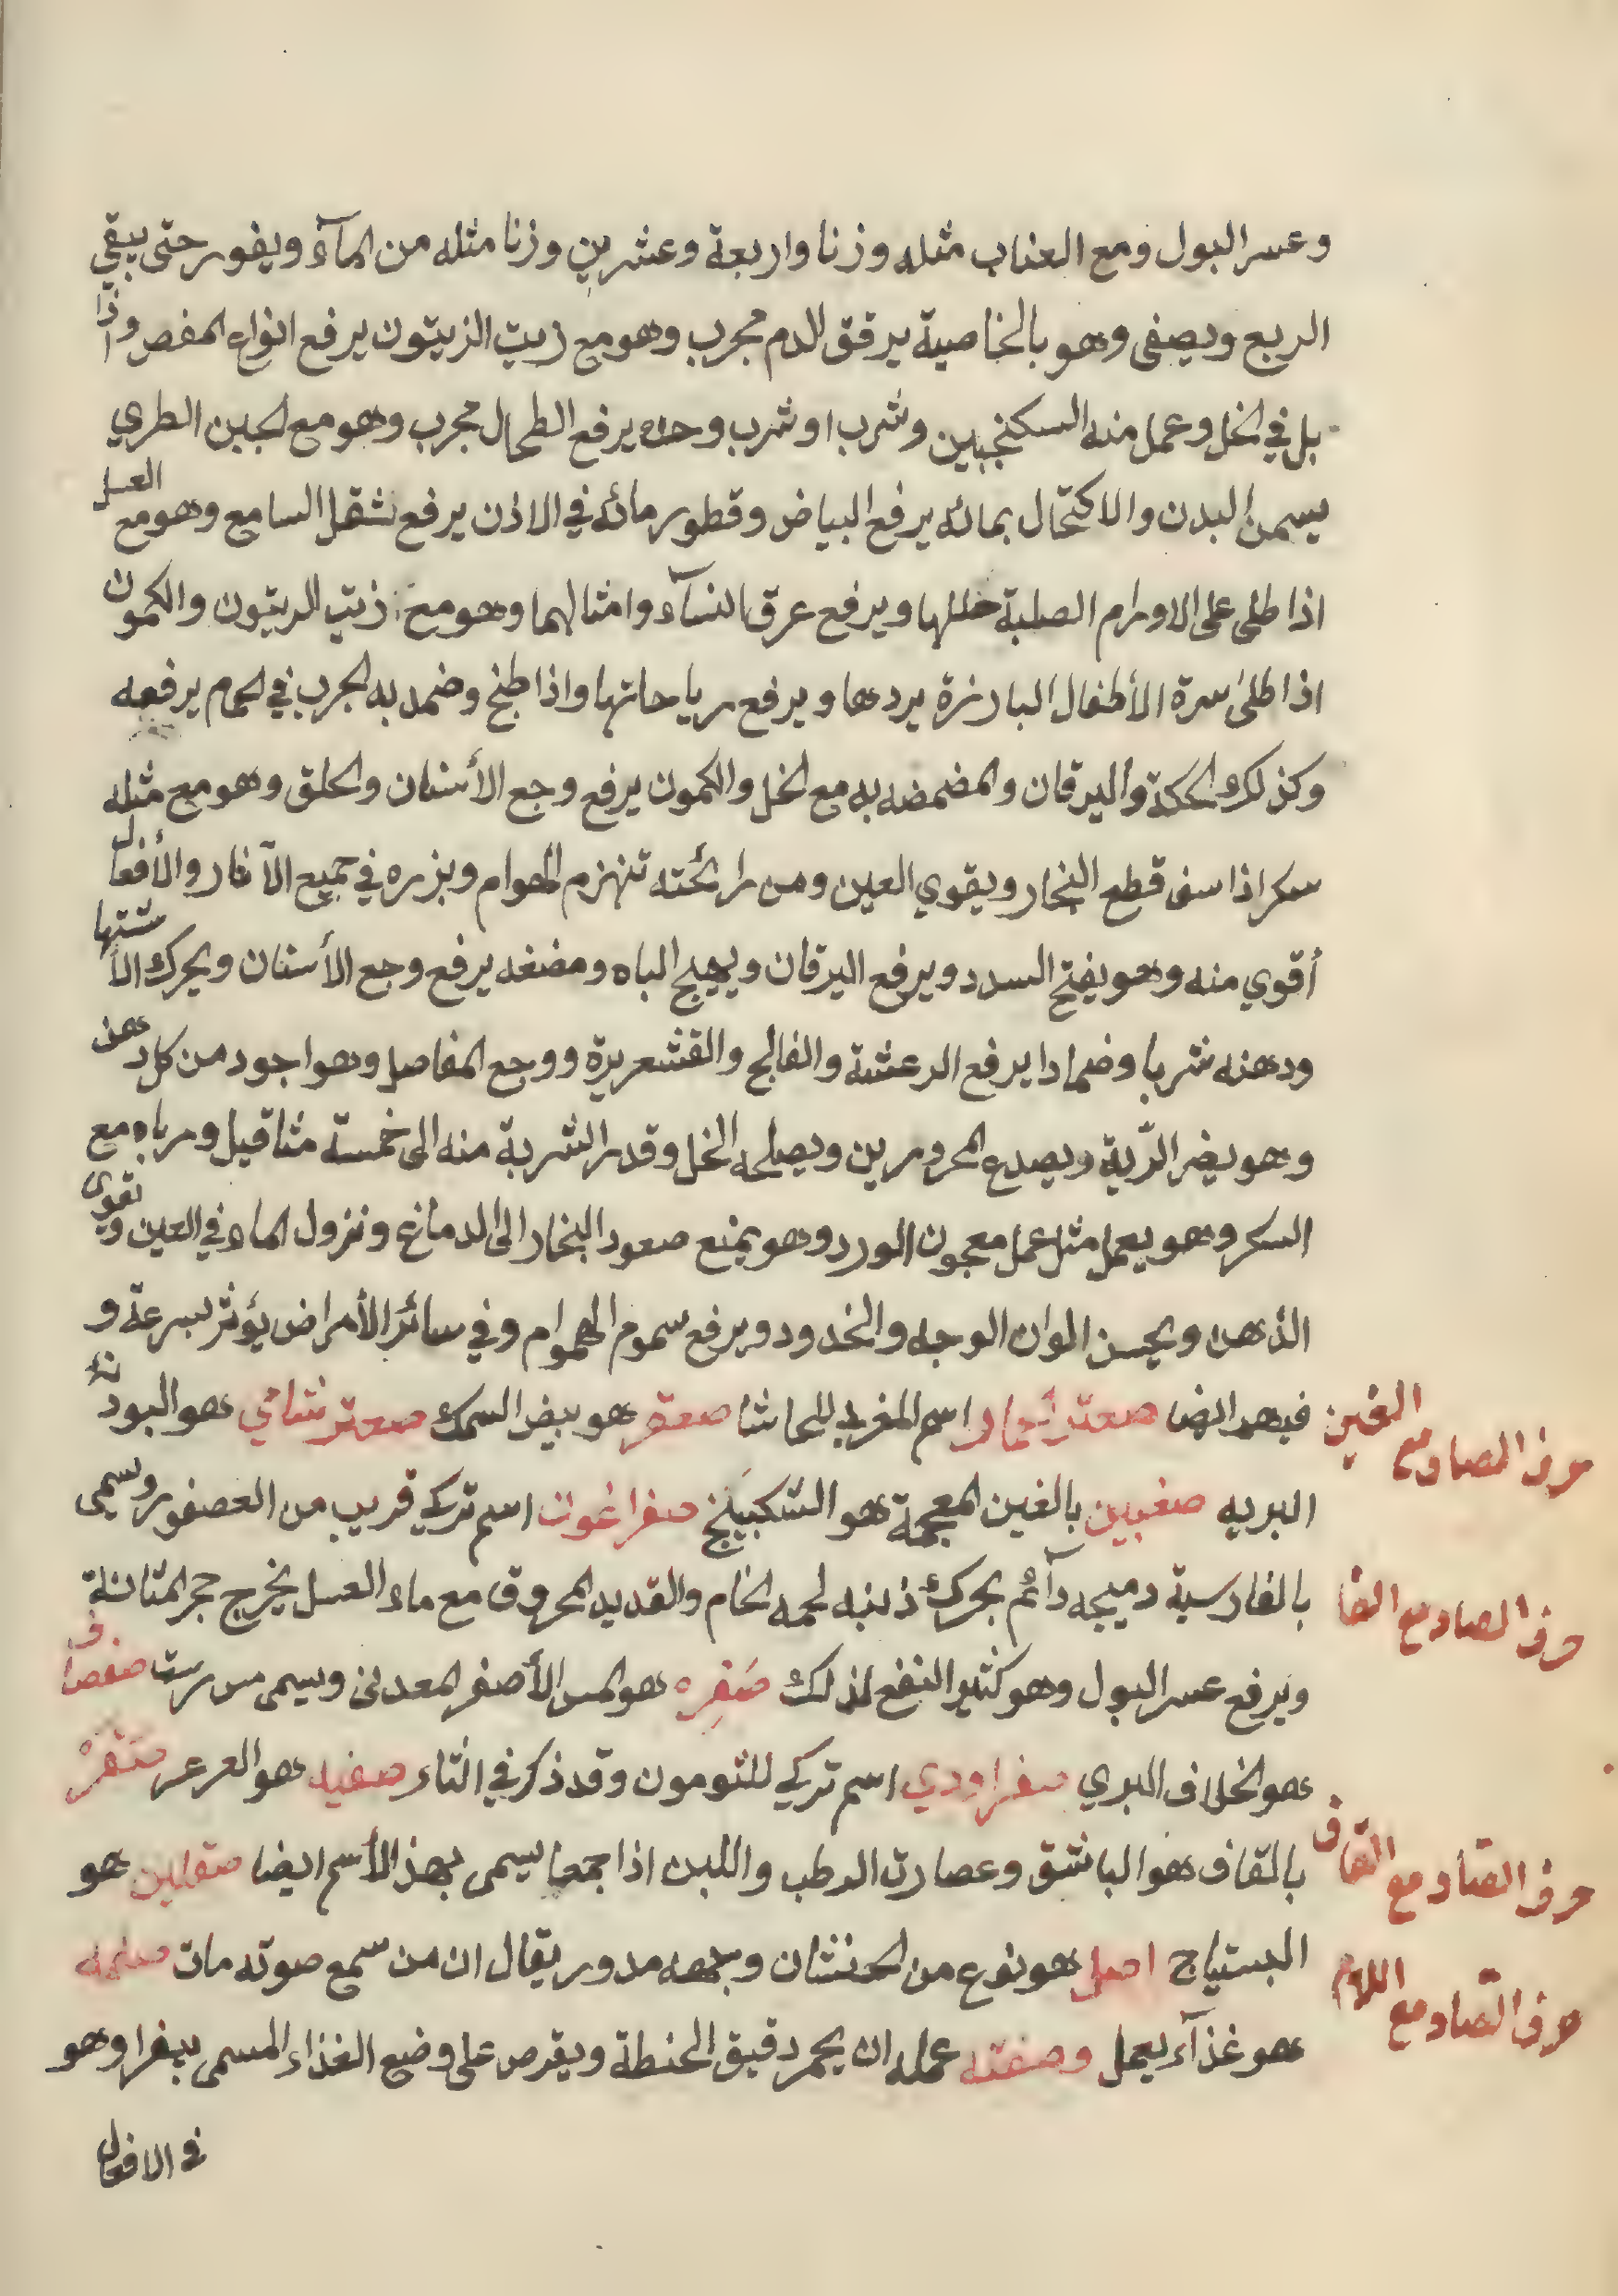 وعسر البول ومع العناب مثله وزنا واربعة وعشرين وزنا مثله من المآء ويفور حتى يبقي
الربع ويصفى وهو بالخاصية يرقق الدم مجرب وهو مع زيت الزيتون يرفع انواع المغص واذا
بل في الخل وعمل منه السكنجبين وشرب او شرب وحده يرفع الطحال مجرب وهو مع الجبن الطري
يسمن البدن والاكتحال بمائه يرفع البياض وقطور مائه في الاذن يرفع ثقل السامع وهو مع العسل
اذا طلى على الاورام الصلبة حللها ويرفع عرق النسآء وامثالهما وهو مع زيت الزيتون والكمون
اذا طلى سرة الأطفال البارزة يردها ويرفع رياحاتها واذا طبخ وضمد به الجرب في الحمام يرفعه
وكذلك الحكة واليرقان والمضمضه به مع الخل والكمون يرفع وجع الأسنان والحلق وهو مع مثله
سكر اذا سف قطع البخار ويقوي العين ومن رائحته تنهزم الهوام وبزره في جميع الآثار والأفعال
أقوي منه وهو يفتح السدد ويرفع اليرقان ويهيج الباه ومضغه يرفع وجع الأسنان ويحرك الاشتها
ودهنه شربا وضمادا يرفع الرعشة والفالج والقشعريرة ووجع المفاصل وهو اجود من كل دهن
وهو يضر الرّية ويصدع المحرورين ويصلحه الخل وقدر الشربة منه الى خمسة مثاقيل ومرباه مع
السكر وهو يعمل مثل عمل معجون الورد وهو يمنع صعود البخار الى الدماغ ونزول الماء في العين ويقوى
الذهن ويحسن الوان الوجه والخدود ويرفع سموم الهوام وفي سائر الأمراض يؤثر بسرعة و
ايضا صعتر اسم المغربي للحاشا صعقر هو بيض السمك صعتر شامي هو البودنه
حرف الصاد مع الغين
البريه صغبين بالغين المعجمة هو السكبينج صفراغون اسم تركي قريب من العصفور وسمى
بالفارسية دميجه دآئم يحرك ذنبه لحمه الخام والقديد المحروق مع ماء العسل يخرج حجر المثانة
حرف الصاد مع الفا
ويرفع عسر البول وهو كثير النفع لذلك صَفِره هو المس الأصفر المعدنى ويسمى صفصاف
هو الخلاف البري صفراودي اسم تركي للثومون وقد ذكر في الثاء صفيه هو العرعر صَقرْ
بالقاف هو الباشق وعصارت الرطب واللبن اذا جمعا يسمى بهذا الأسم ايضا صقلين هو
حرف الصّاد مع القاف
البستياج اصل هو نوع من الحنشان وجهه مدور يقال ان من سمع صوته مات
حرف الصّاد مع اللام
هو غذآء يعمل وصفته عمله ان يخمر دقيق الحنطة ويقرص على وضع الغذاء المسمى وهو
في الافعال